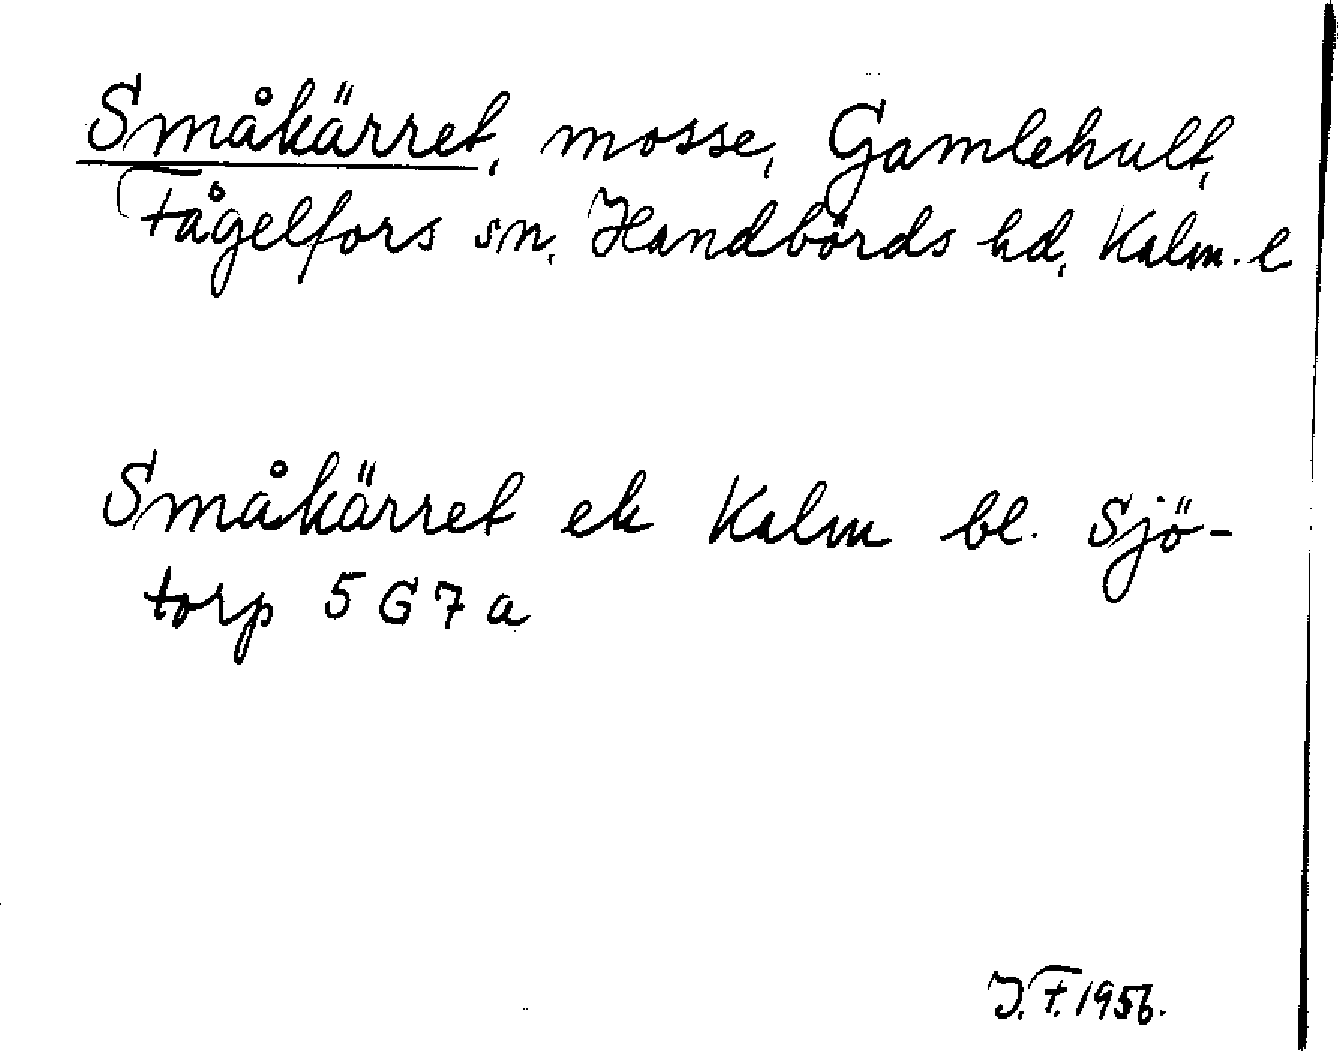 Småkärret, mosse, Gamlehult,
Fågelfors sn, Handbörds hd, Kalm. l
Småkärret ek Kalm bl. Sjö-
torp 5 G 7 a
J.F. 1956.